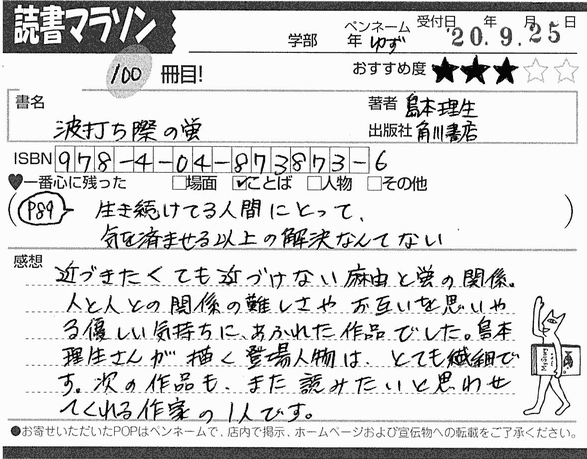 読書マラソン
学部 年 ペンネーム ゆず 受付日 '20.9.25 年 月 日
100 冊目! おすすめ度 ★★★☆☆
書名 波打ち際の蛍
著者 島本理生
出版社 角川書店
ISBN 978-4-04-873873-6
♥一番心に残った □場面 ☑ことば □人物 □その他
(P89 生き続けてる人間にとって、
気を済ませる以上の解決なんてない)
感想
近づきたくても近づけない麻由と蛍の関係。
人と人との関係の難しさやお互いを思いや
る優しい気持ちに、あふれた作品でした。島本
理生さんが描く登場人物は、とても繊細で
す。次の作品も、また読みたいと思わせ
てくれる作家の1人です。
●お寄せいただいたPOPはペンネームで、店内で掲示、ホームページおよび宣伝物への転載をご了承ください。